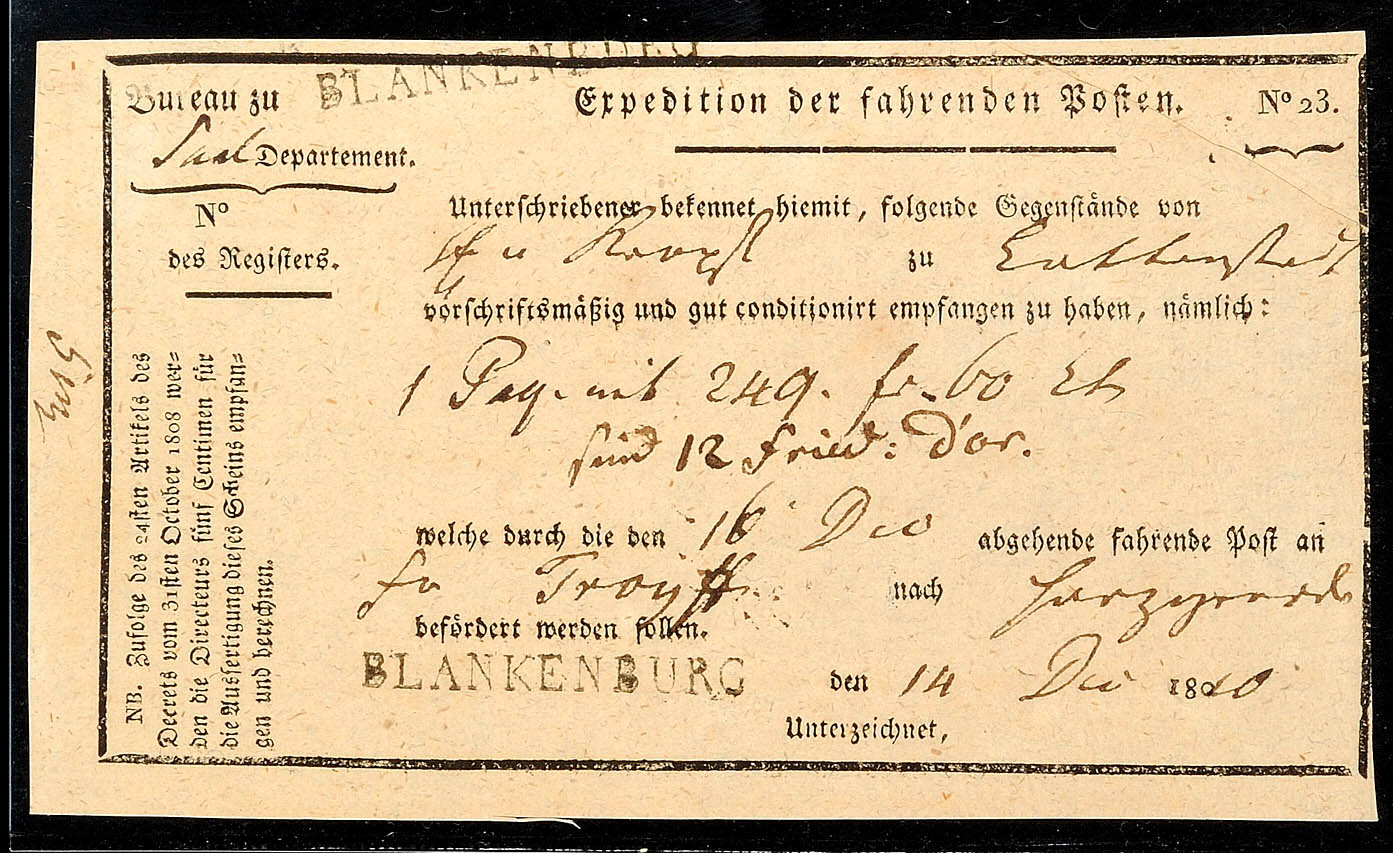 Bureau zu BLANKENBURG
Expedition der fahrenden Posten. No 23.
Saal Departement.
No
des Registers.
Unterschriebener bekennet hiemit, folgende Gegenstände von
zu
vorschriftsmäßig und gut conditionirt empfangen zu haben, nämlich:
1 Paq. mit 249. fr. 60 Ct
sind 12 Fried: D'or.
welche durch die den 16 Dec abgehende fahrende Post an
nach Harzgerode
befördert werden sollen.
BLANKENBURG den 14 Dec 1810
Unterzeichnet,
NB. Zufolge des 24sten Artikels des
Decrets vom 31sten October 1808 wer=
den die Directeurs fünf Centimen für
die Ausfertigung dieses Scheins empfan=
gen und berechnen.